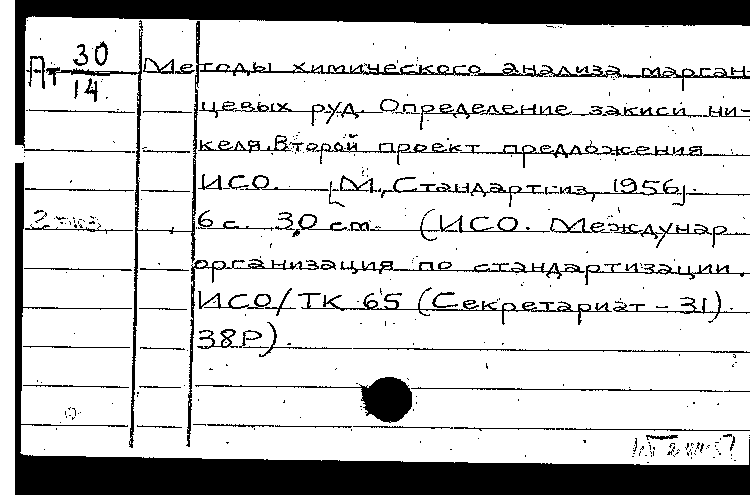 Пт 30/14 Методы химического анализа марган-
цевых руд. Определение закиси ни-
келя. Второй проект предложения
ИСО. [М., Стандартгиз, 1956].
2 экз. 6 с. 30 см. (ИСО. Междунар
организация по стандартизации.
ИСО/ТК 65 (Секретариат - 31)
38Р).